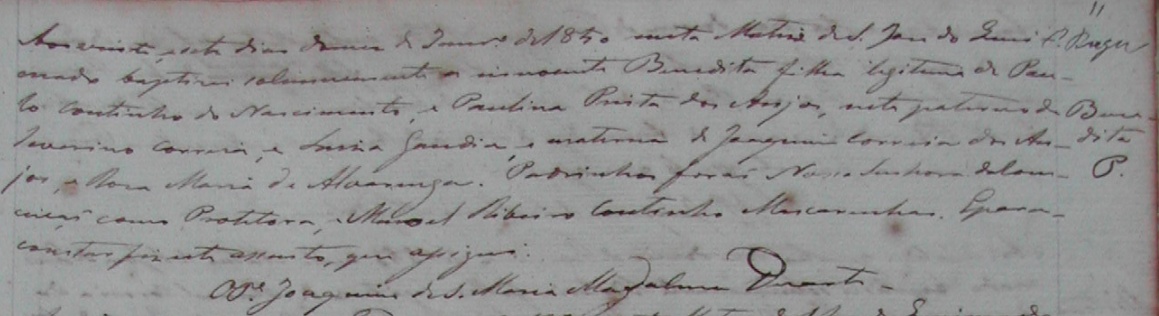 11
Aos vinte, sete dias do mez de Janr.º de 1850 nesta Matriz de S. José do
baptizei solemnemente a innocente Benedita filha legitima de Pau-
lo Coutinho do Nascimento, e Paulina dos Anjos, neta paterna de
Severino Correia, e Luzia Gaudia, e materna de Joaquim Correia dos An-
jos, e Rosa Maria de Alvarenga. Padrinhos forão Nossa Senhora da Con-
ceição como Protetora, e Manoel Ribeiro Coutinho Mascarenhas. E para
constar fiz este assento, que assignei.
O P.e Joaquim de S. Maria Magdalena Duarte
Bene-
dita
P.